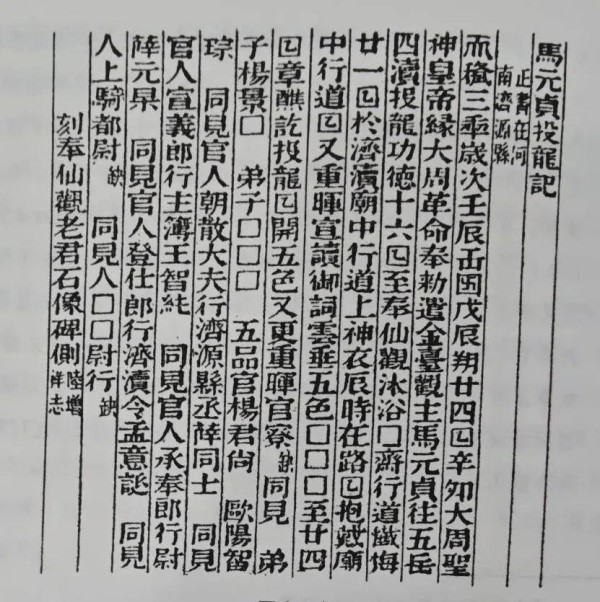 馬元貞投龍記
正書在河
南濟源縣
𠀑𥠢三𠡦歲次壬辰𠙺囝戊辰朔廿四𡆠辛卯大周聖
神皇帝緣大周革命奉勑遣金臺觀主馬元貞往五岳
四瀆投龍功德十六𡆠至奉仙觀沐浴□齋行道懺悔
廿一𡆠於濟瀆廟中行道上神衣辰時在路𡆠抱戴廟
中行道𡆠又重暉宣讀御詞雲垂五色□□□至廿四
𡆠章醮訖投龍𡆠開五色又更重暉官寮缺同見 弟
子楊景□ 弟子□□□ 五品官楊君尚 歐陽智
琮 同見官人朝散大夫行濟源縣丞薛同士 同見
官人宣義郎行主簿王智純 同見官人承奉郎行尉
薛元杲 同見官人登仕郎行濟瀆令孟意詃 同見
人上騎都尉缺 同見人□□尉行缺
刻奉仙觀老君石像碑側陸增祥志